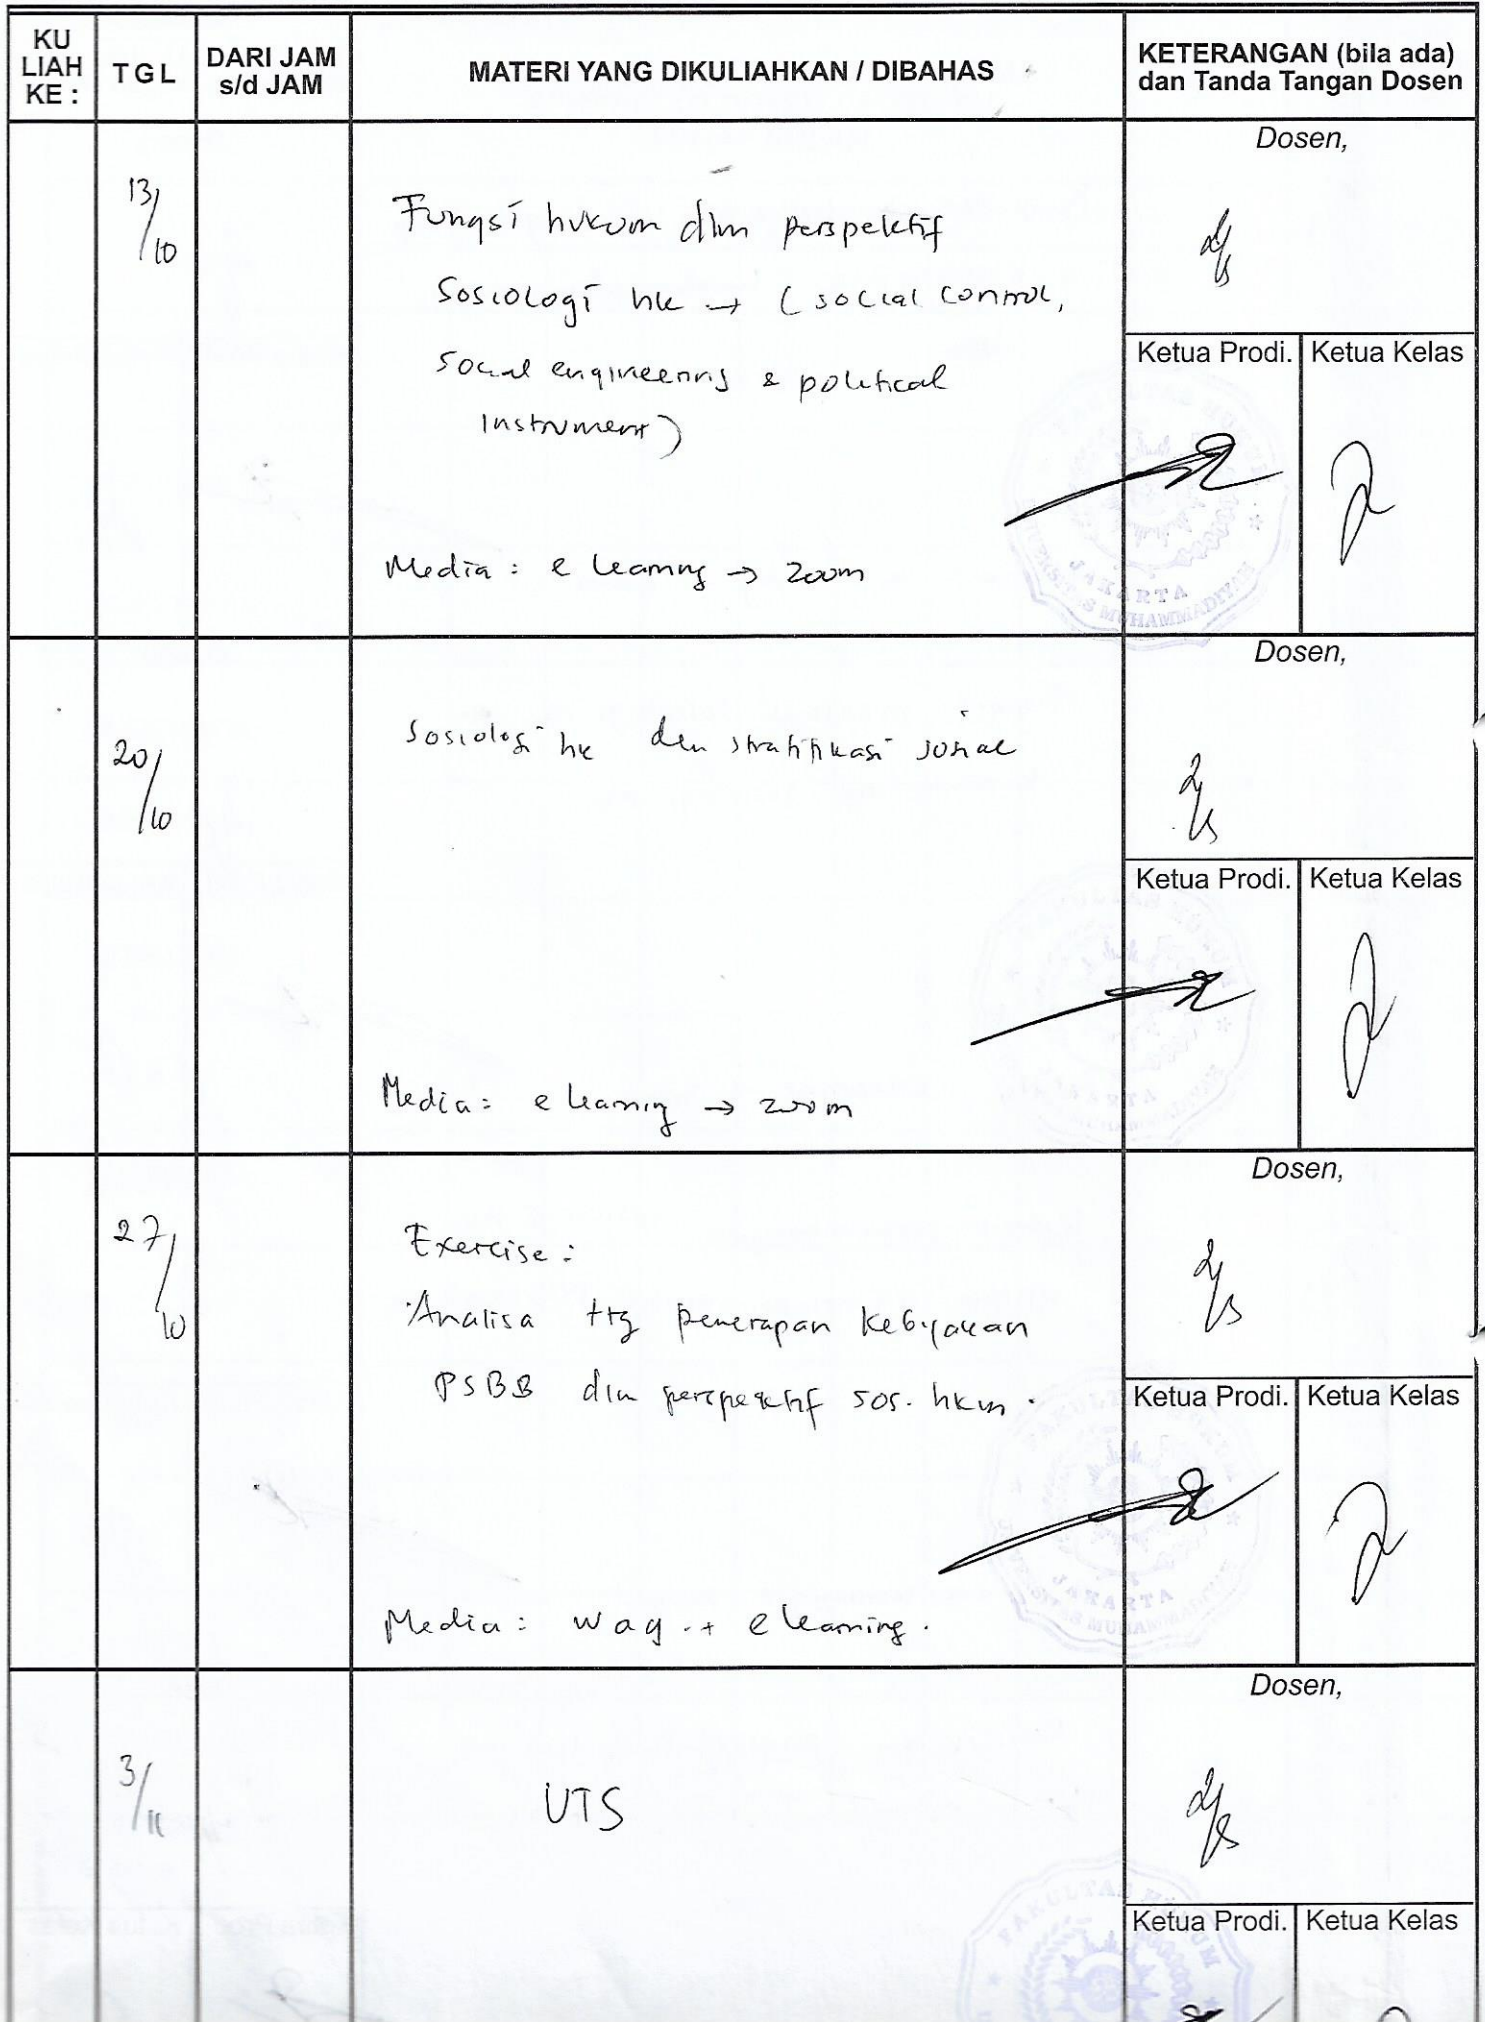 KU LIAH KE :
TGL
DARI JAM s/d JAM
MATERI YANG DIKULIAHKAN / DIBAHAS
KETERANGAN (bila ada) dan Tanda Tangan Dosen
13/10
Fungsi hukum dlm perspektif
Sosiologi hk → (social control,
social engineering & political
instrument)
Media : e learning → zoom
Dosen,
Ketua Prodi.
Ketua Kelas
JAKARTA
UNIVERSITAS MUHAMMADIYAH
20/10
Sosiologi hk dan stratifikasi sosial
Media : e learning → zoom
Dosen,
Ketua Prodi.
Ketua Kelas
27/10
Exercise :
Analisa ttg penerapan kebijakan
PSBB dlm perspektif sos. hkm.
Media : wag + e learning.
Dosen,
Ketua Prodi.
Ketua Kelas
JAKARTA
3/11
UTS
Dosen,
Ketua Prodi.
Ketua Kelas
FAKULTAS HUKUM